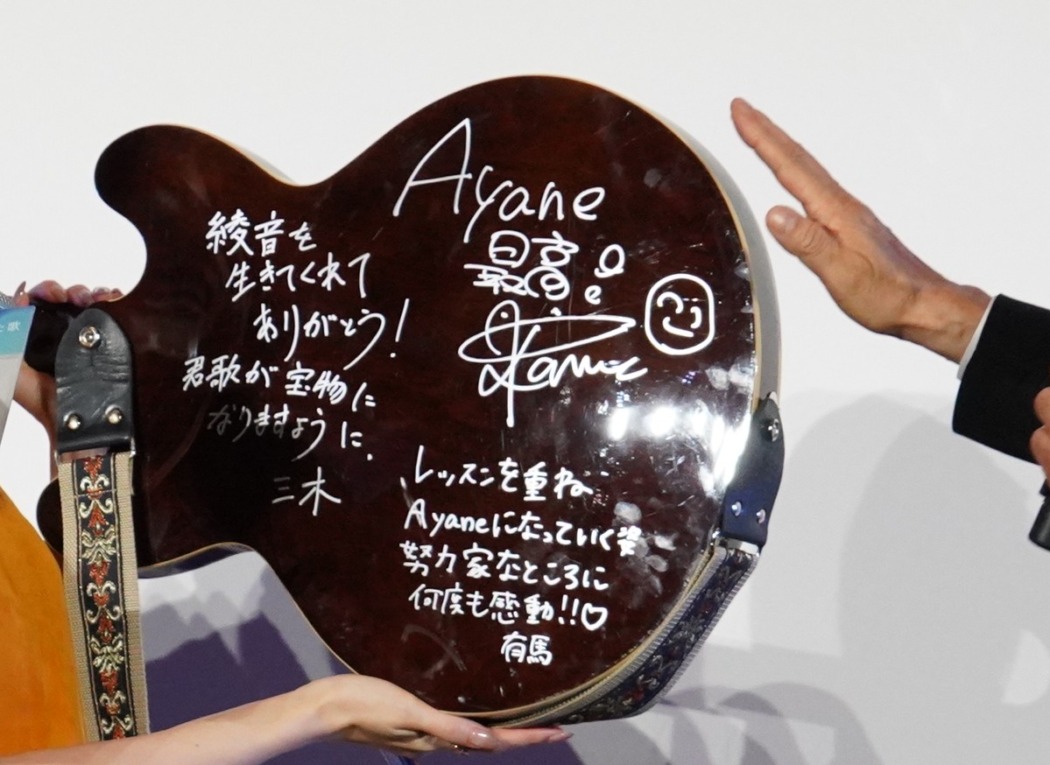 Ayane
最高!!
綾音を
生きてくれて
ありがとう!
君歌が宝物に
なりますように.
三木
レッスンを重ね
Ayaneになっていく姿
努力家なところに
何度も感動!!♡
有馬
歌